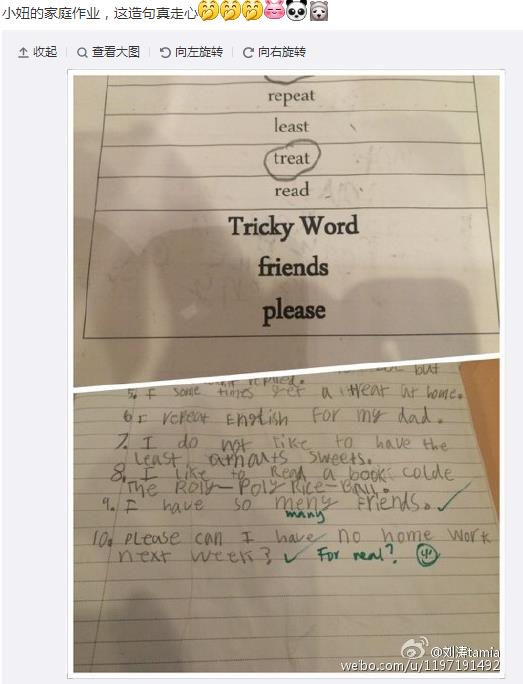 小妞的家庭作业，这造句真走心
收起 查看大图 向左旋转 向右旋转
repeat
least
treat
read
Tricky Word
friends
please
but
replied.
5. I some times get a treat at home.
6 I repeat English for my dad.
7. I do not like to have the
least amauts sweets.
8. I like to Read a book colde
The Roly-Poly Rice-Ball.
9. I have so meny friends.
many
10. please can I have no home work
next week? For real?
@刘涛tamia
weibo.com/u/1197191492